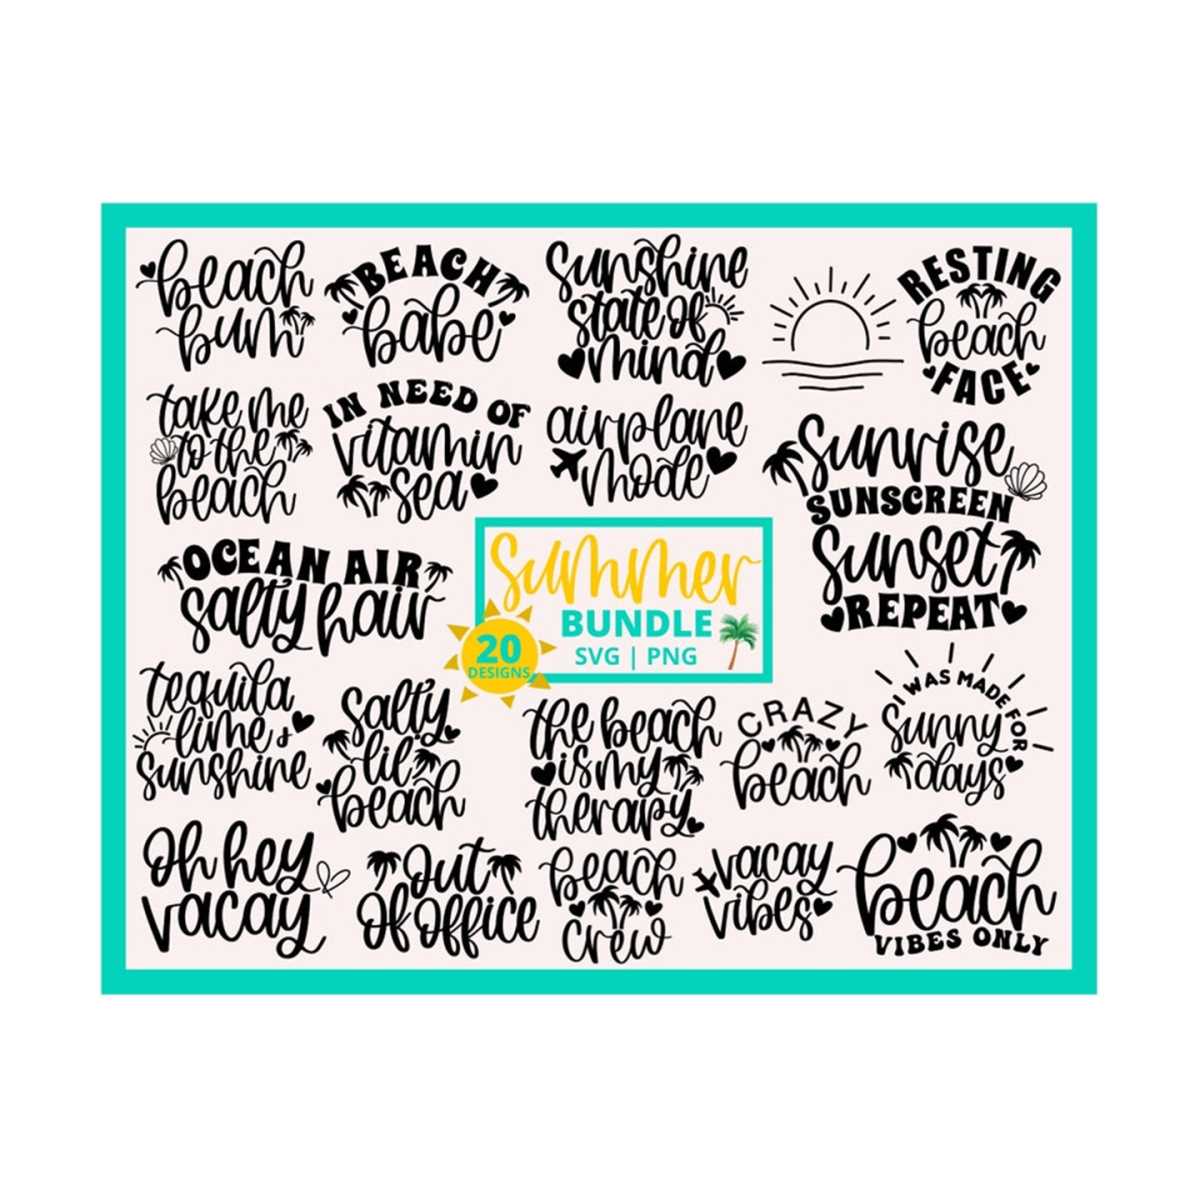 beach
bum
BEACH
babe
sunshine
state of
mind
RESTING
beach
FACE
take me
to the
beach
IN NEED OF
vitamin
sea
airplane
mode
sunrise
SUNSCREEN
sunset
REPEAT
OCEAN AIR
salty hair
summer
BUNDLE
SVG | PNG
20
DESIGNS
tequila
lime &
sunshine
salty
lil'
beach
the beach
is my
therapy
CRAZY
beach
I WAS MADE FOR
sunny
days
Oh hey
vacay
Out
Of Office
beach
crew
vacay
vibes
beach
VIBES ONLY